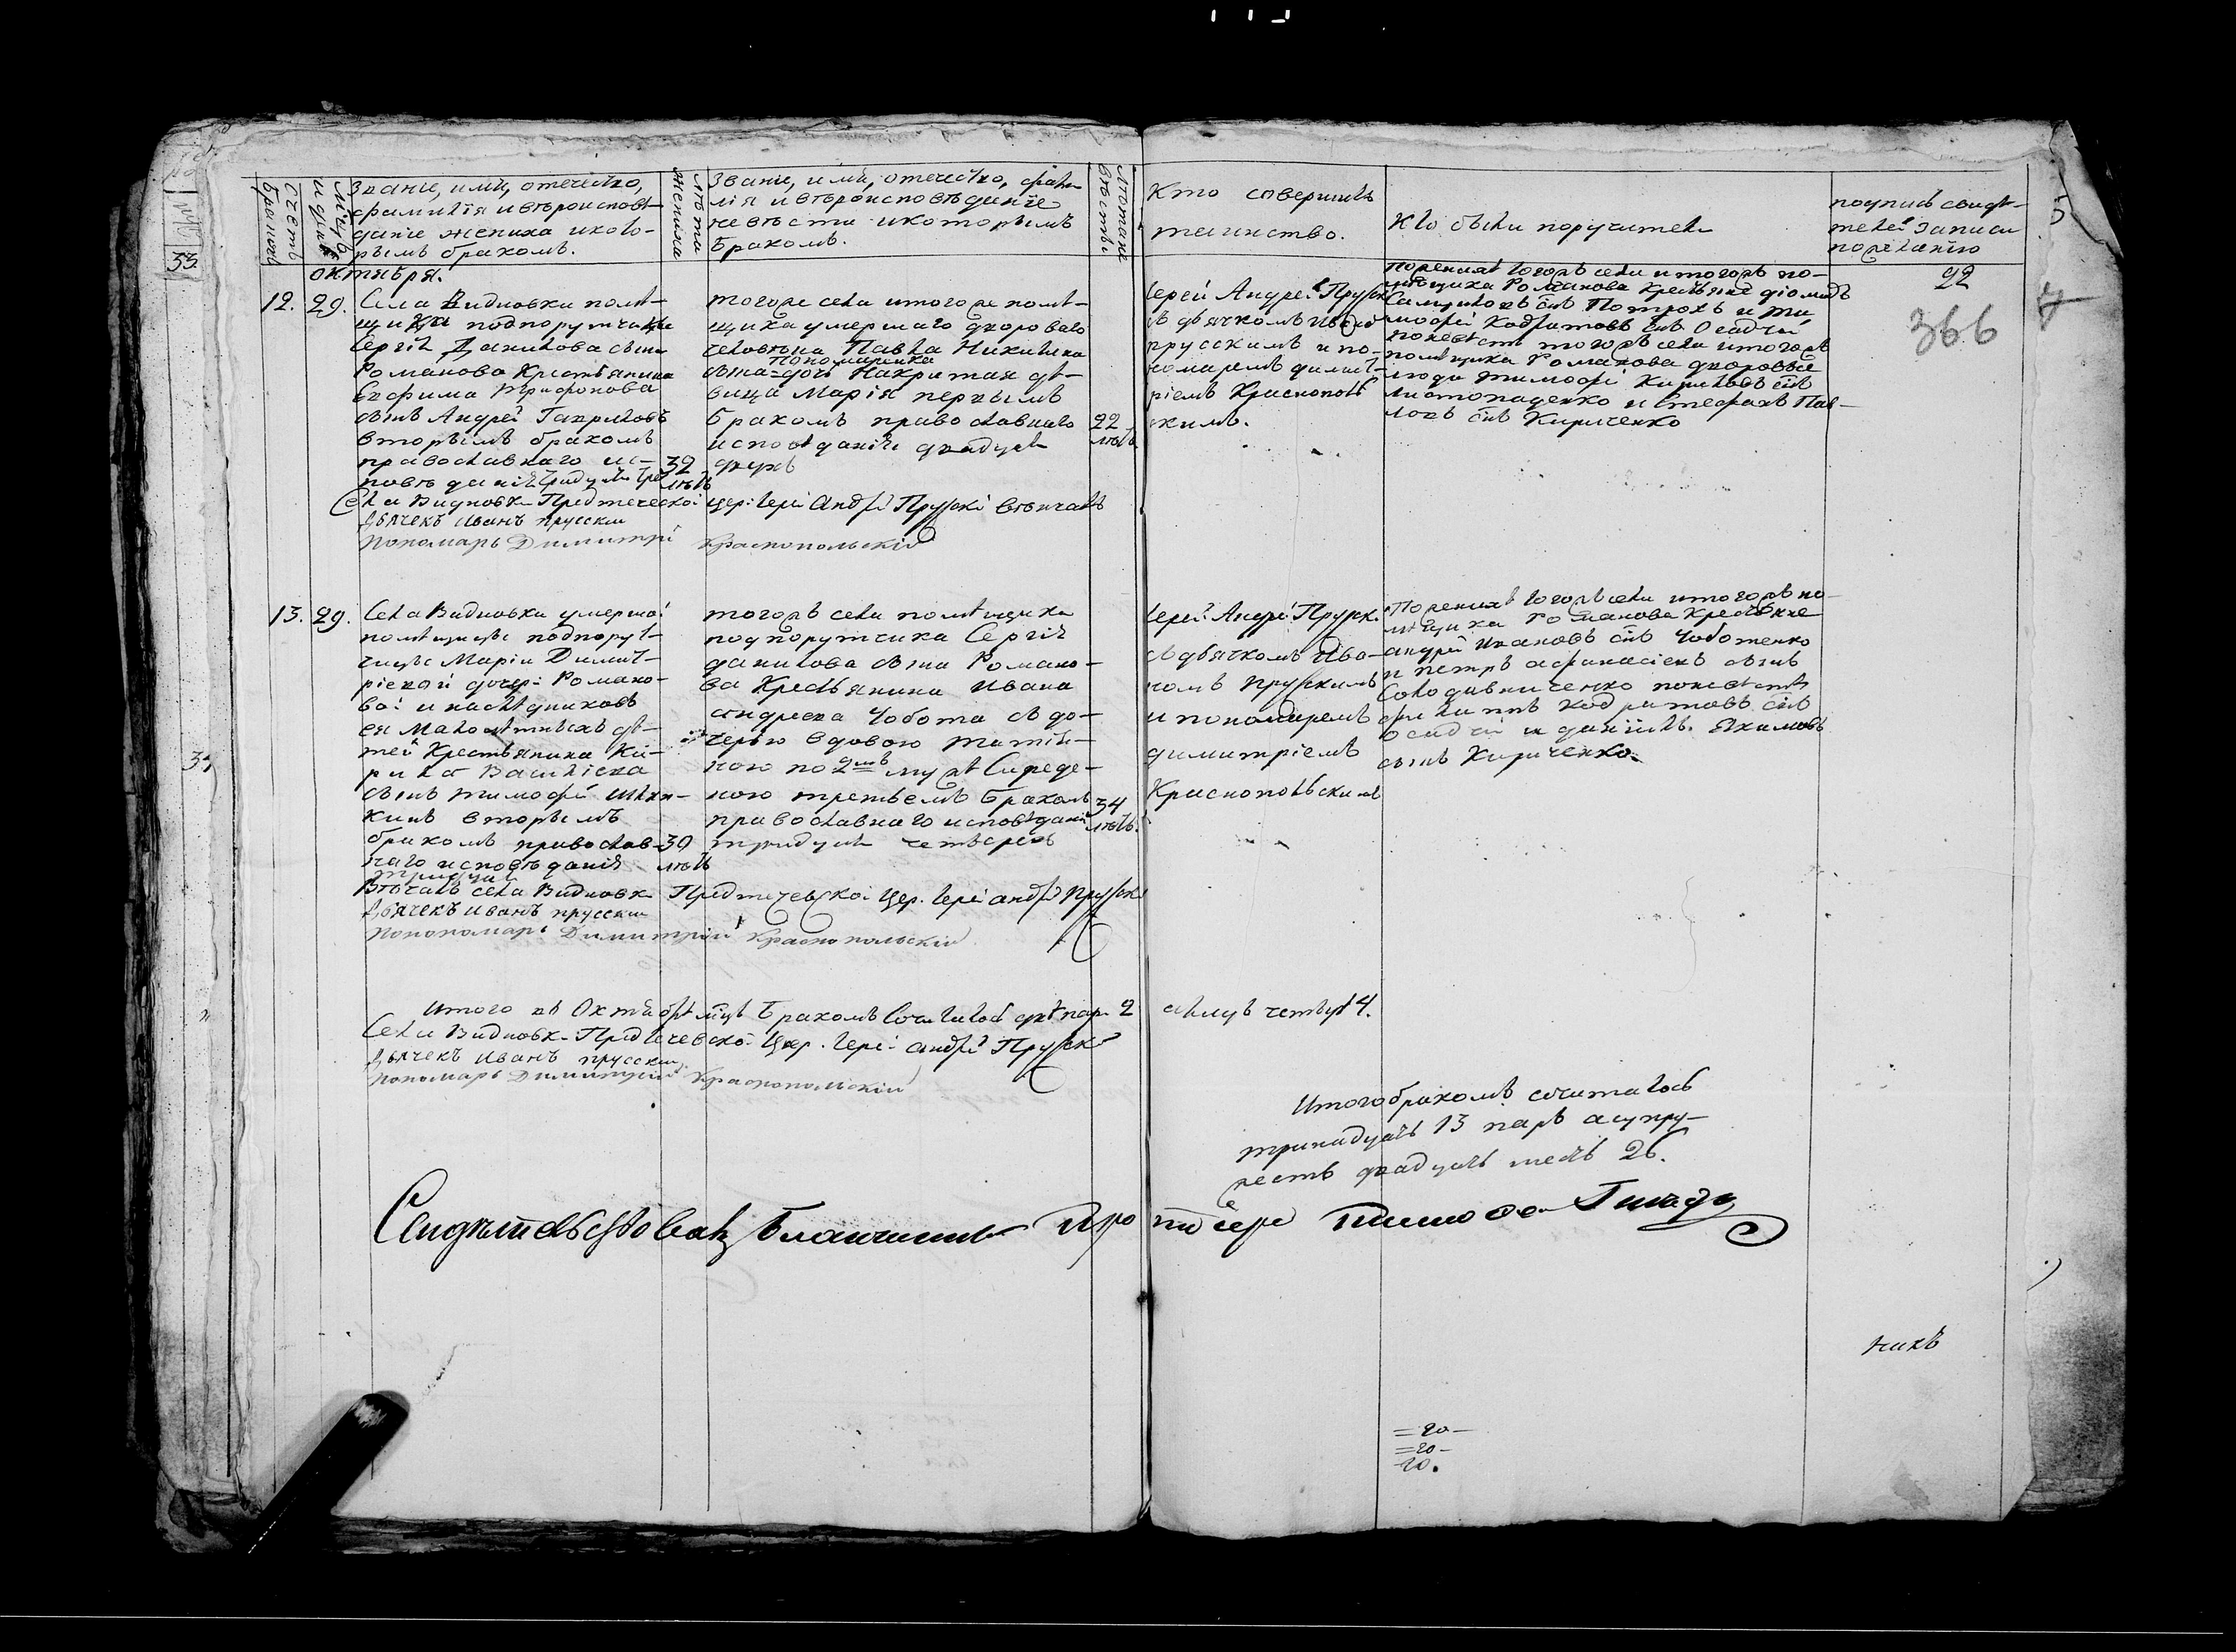 Счетъ браковъ
Мѣсяцъ и день
Званіе, имя, отечество,
фамилія и вѣроисповѣ-
даніе жениха и кото-
рымъ бракомъ.
лѣта жениха
Званіе, имя, отечество, фами-
лія и вѣроисповѣданіе
невѣсты и которымъ
бракомъ.
лѣта невѣсты
Кто совершилъ
таинство.
Кто были поручители
подпись свидѣ-
телей записи
по желанію
октября.
12. 29.
Села Видновки помѣ-
щика подпоручика
Сергія Данилова сына
Романова Крестьянина
Ефима Трифонова
сынъ Андрей Гавриловъ
вторымъ бракомъ
православнаго ис-
повѣданія
32
лѣтъ
тогоже села и тогоже помѣ-
щика умершаго двороваго
человѣка Павла Никитина
Пономаренка
сына дочь Накритая дѣ-
вица Марія первымъ
бракомъ православнаго
исповѣданія двадцать
двухъ
22
лѣтъ
Іерей Андрей Прусскі
съ дьячкомъ Ивано
прусскимъ и по-
номаремъ димит-
ріемъ Краснополь
скимъ.
По женихѣ тогожъ села и тогожъ по-
мѣщика Романова Крестьяне
сынъ и Ти
мофей Кодратовъ сынъ Осадчій
по невѣсте тогожъ села и тогожъ
помѣщика Романова дворовые
люди тимофей Кириловъ сынъ
Листопаденко и Стефанъ Пав-
ловъ сынъ Кириченко
22
366
Села Видновки Предтеческой цер: Іерей Андрей Прускі вѣнчалъ
Дьячекъ Иванъ прусскии
Пономарь Димитрій Краснопольскій
13. 29.
Села Видновки умершой
помѣщицы подпорут-
чицы Маріи Димит-
ріевой дочери Романо-
вой и наслѣдниковъ
ея малолѣтныхъ дѣ-
тей Крестьянина Ки-
рила Василіева
сынъ тимофей
вторымъ
бракомъ православ-
наго исповѣданія
тридцать
30
лѣтъ
тогожъ села помѣщика
подпорутчика Сергія
данилова сына Романо-
ва Крестьянина Ивана
андреева Чобота съ до-
черью вдовою татія-
ною по 2мъ мужѣ Середе-
ною третьемъ бракомъ
православнаго исповѣданія
тридцать четырех
34
лѣтъ.
Іерей Андрей Прускі
съ дьячкомъ Ива-
номъ прускимъ
и пономаремъ
димитріемъ
Краснопольскимъ
По женихѣ тогожъ села и тогожъ по-
мѣщика Романова Крестьяне
андрей ивановъ сынъ Чоботенко
и петръ афанасіевъ сынъ
Солодавниченко по невѣсте
филиппъ Кодратовъ сынъ
Осадчій и даніилъ Якимовъ
сынъ Кириченко.
Вѣнчалъ села Видновки Предтечевской Цер. Іерей андрей Прускі
Дьячекъ Иванъ прусскии
Понономарь Димитрій Краснопольскій
Итого въ Октябрѣ мцѣ Бракомъ Сочиталось двѣ пары 2 а лицъ четыре 4.
Села Видновки Предтечевской Цер. Іерей андрей Прускі
Дьячекъ Иванъ прусскии
Пономарь Димитрій Краснопольскій
Итого бракомъ сочиталось
тринадцать 13 паръ а супру-
жествъ двадцать шесть 26.
Свидѣтельствовалъ Благочинный Протоіерей
нихъ
=20-
=20-
20.
33